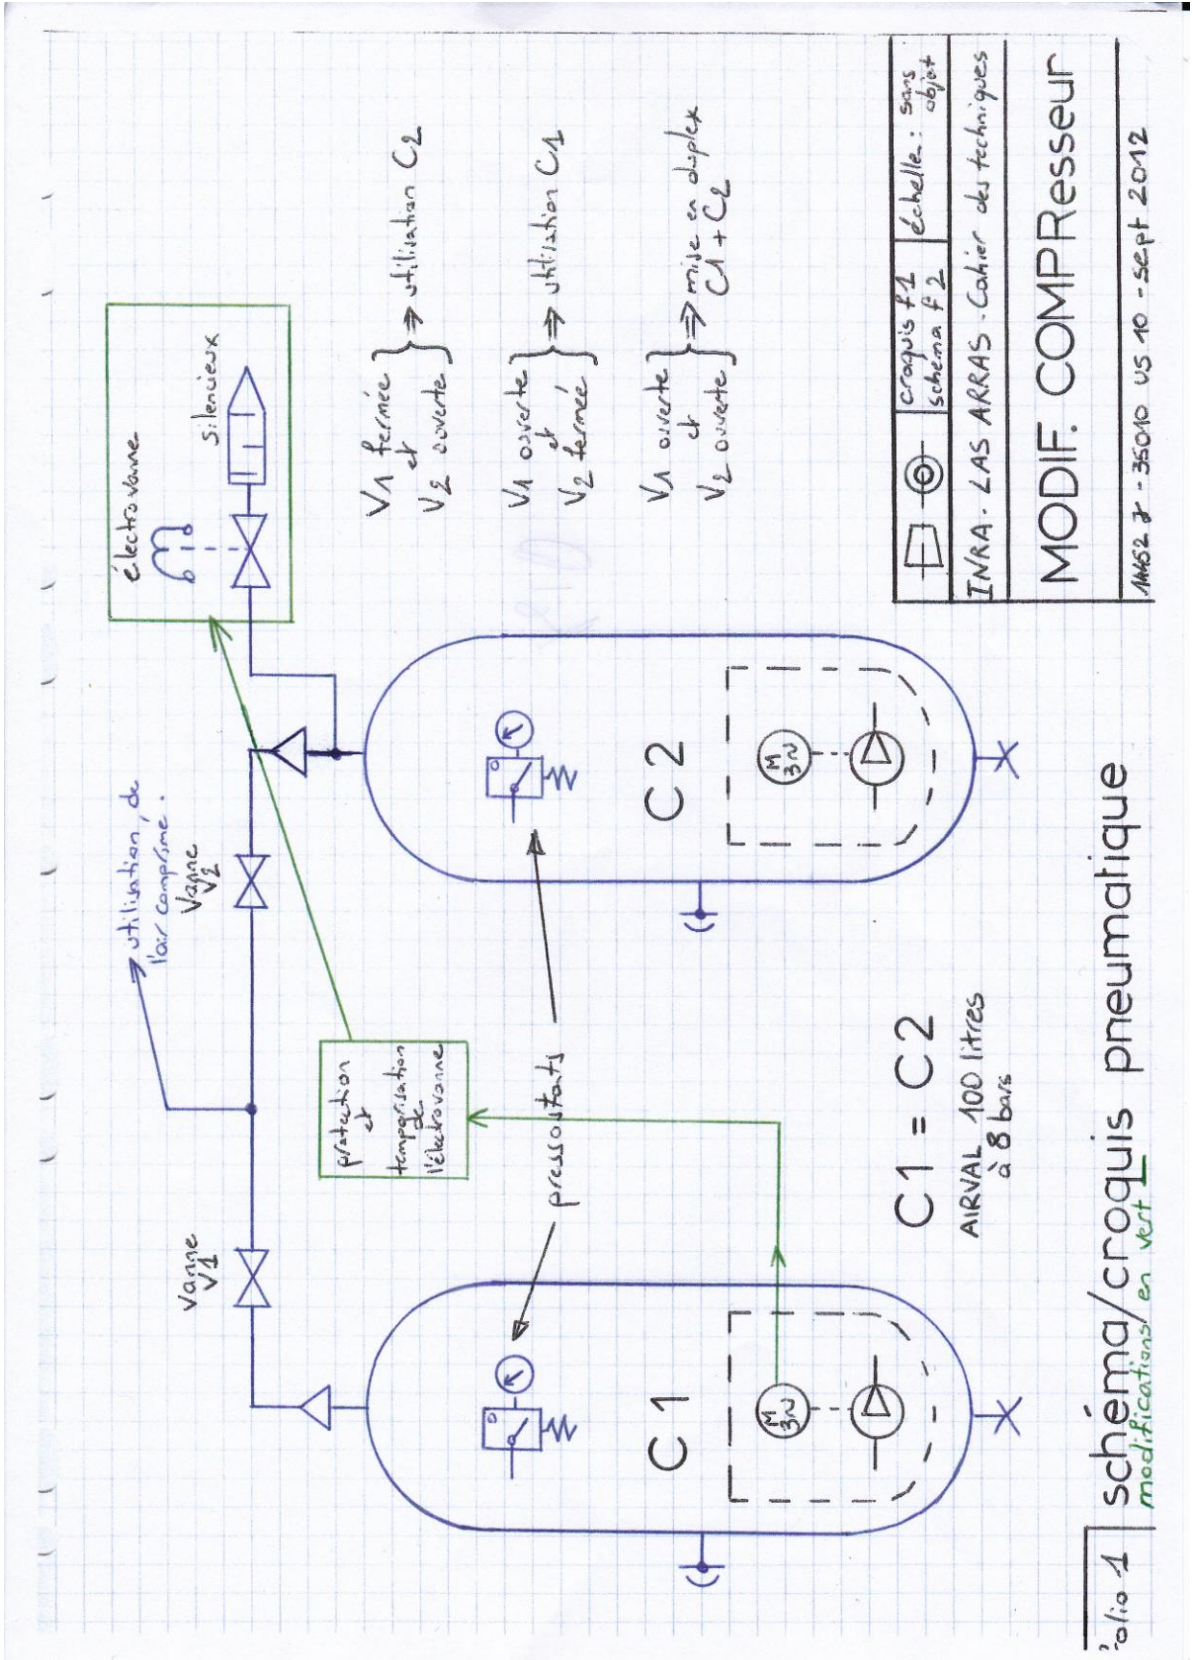 électrovanne
silencieux
utilisation de
l'air comprimé.
Vanne
V1
Vanne
V2
protection
et
temporisation
de
l'électrovanne
pressostats
C1
M
3~
C2
M
3~
V1 fermée
et
V2 ouverte
⇒ utilisation C2
V1 ouverte
et
V2 fermée
⇒ utilisation C1
V1 ouverte
et
V2 ouverte
⇒ mise en duplex
C1 + C2
C1 = C2
AIRVAL 100 litres
à 8 bars
croquis f1
schéma f2
échelle : sans
objet
INRA - LAS ARRAS - Cahier des techniques
MODIF. COMPResseur
US 10 - sept 2012
folio 1
schéma/croquis pneumatique
modifications en vert